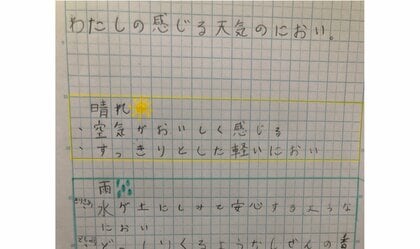 わたしの感じる天気のにおい。
晴れ
・空気がおいしく感じる
・すっきりとした軽いにおい
雨
水が土にしみて安心するような
におい